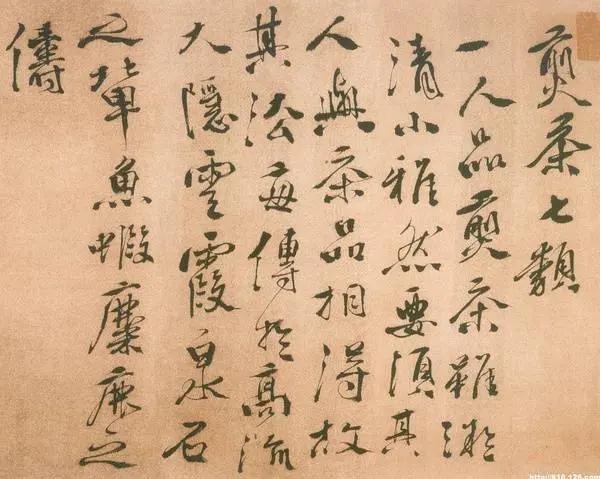 煎茶七類
一人品煎茶雖微
清小雅然要須其
人與茶品相得故
其法每傳於高流
大隱雲霞泉石
之輩魚蝦麋鹿之
儔